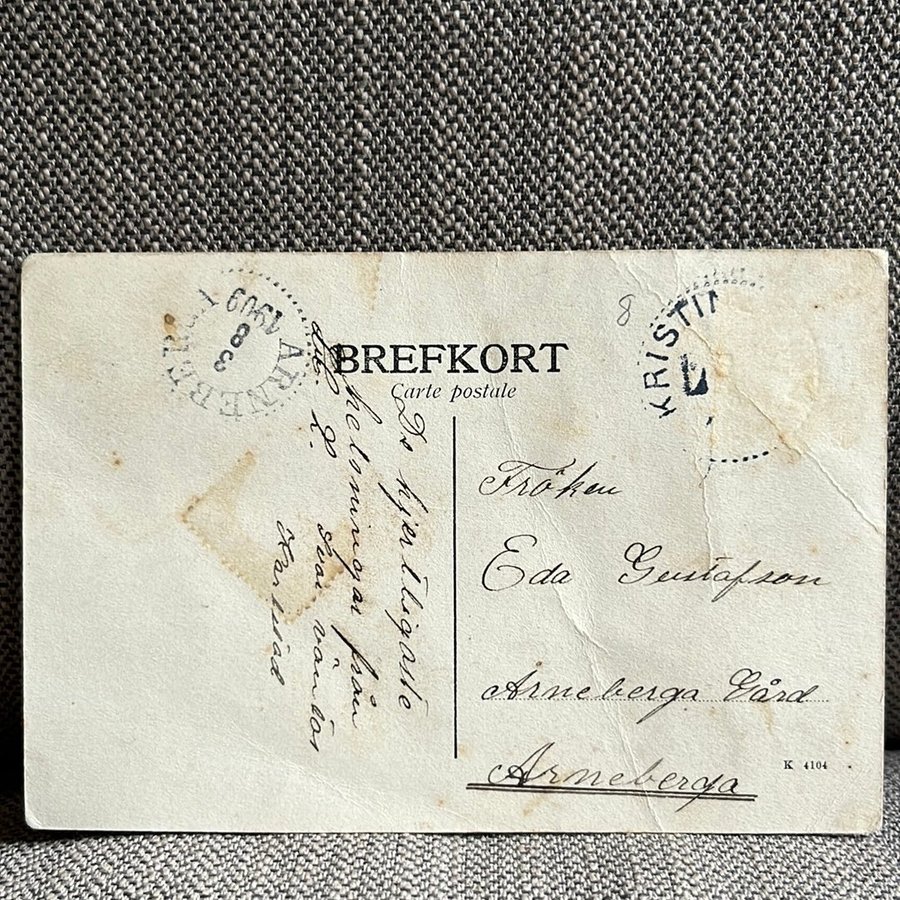 ARNEBERGA
8 3
1909
8
KRISTI
BREFKORT
Carte postale
De hjertligaste
helsningar från
Svar väntas
Fröken
Eda Gustafson
Arneberga Gård
Arneberga
K 4104